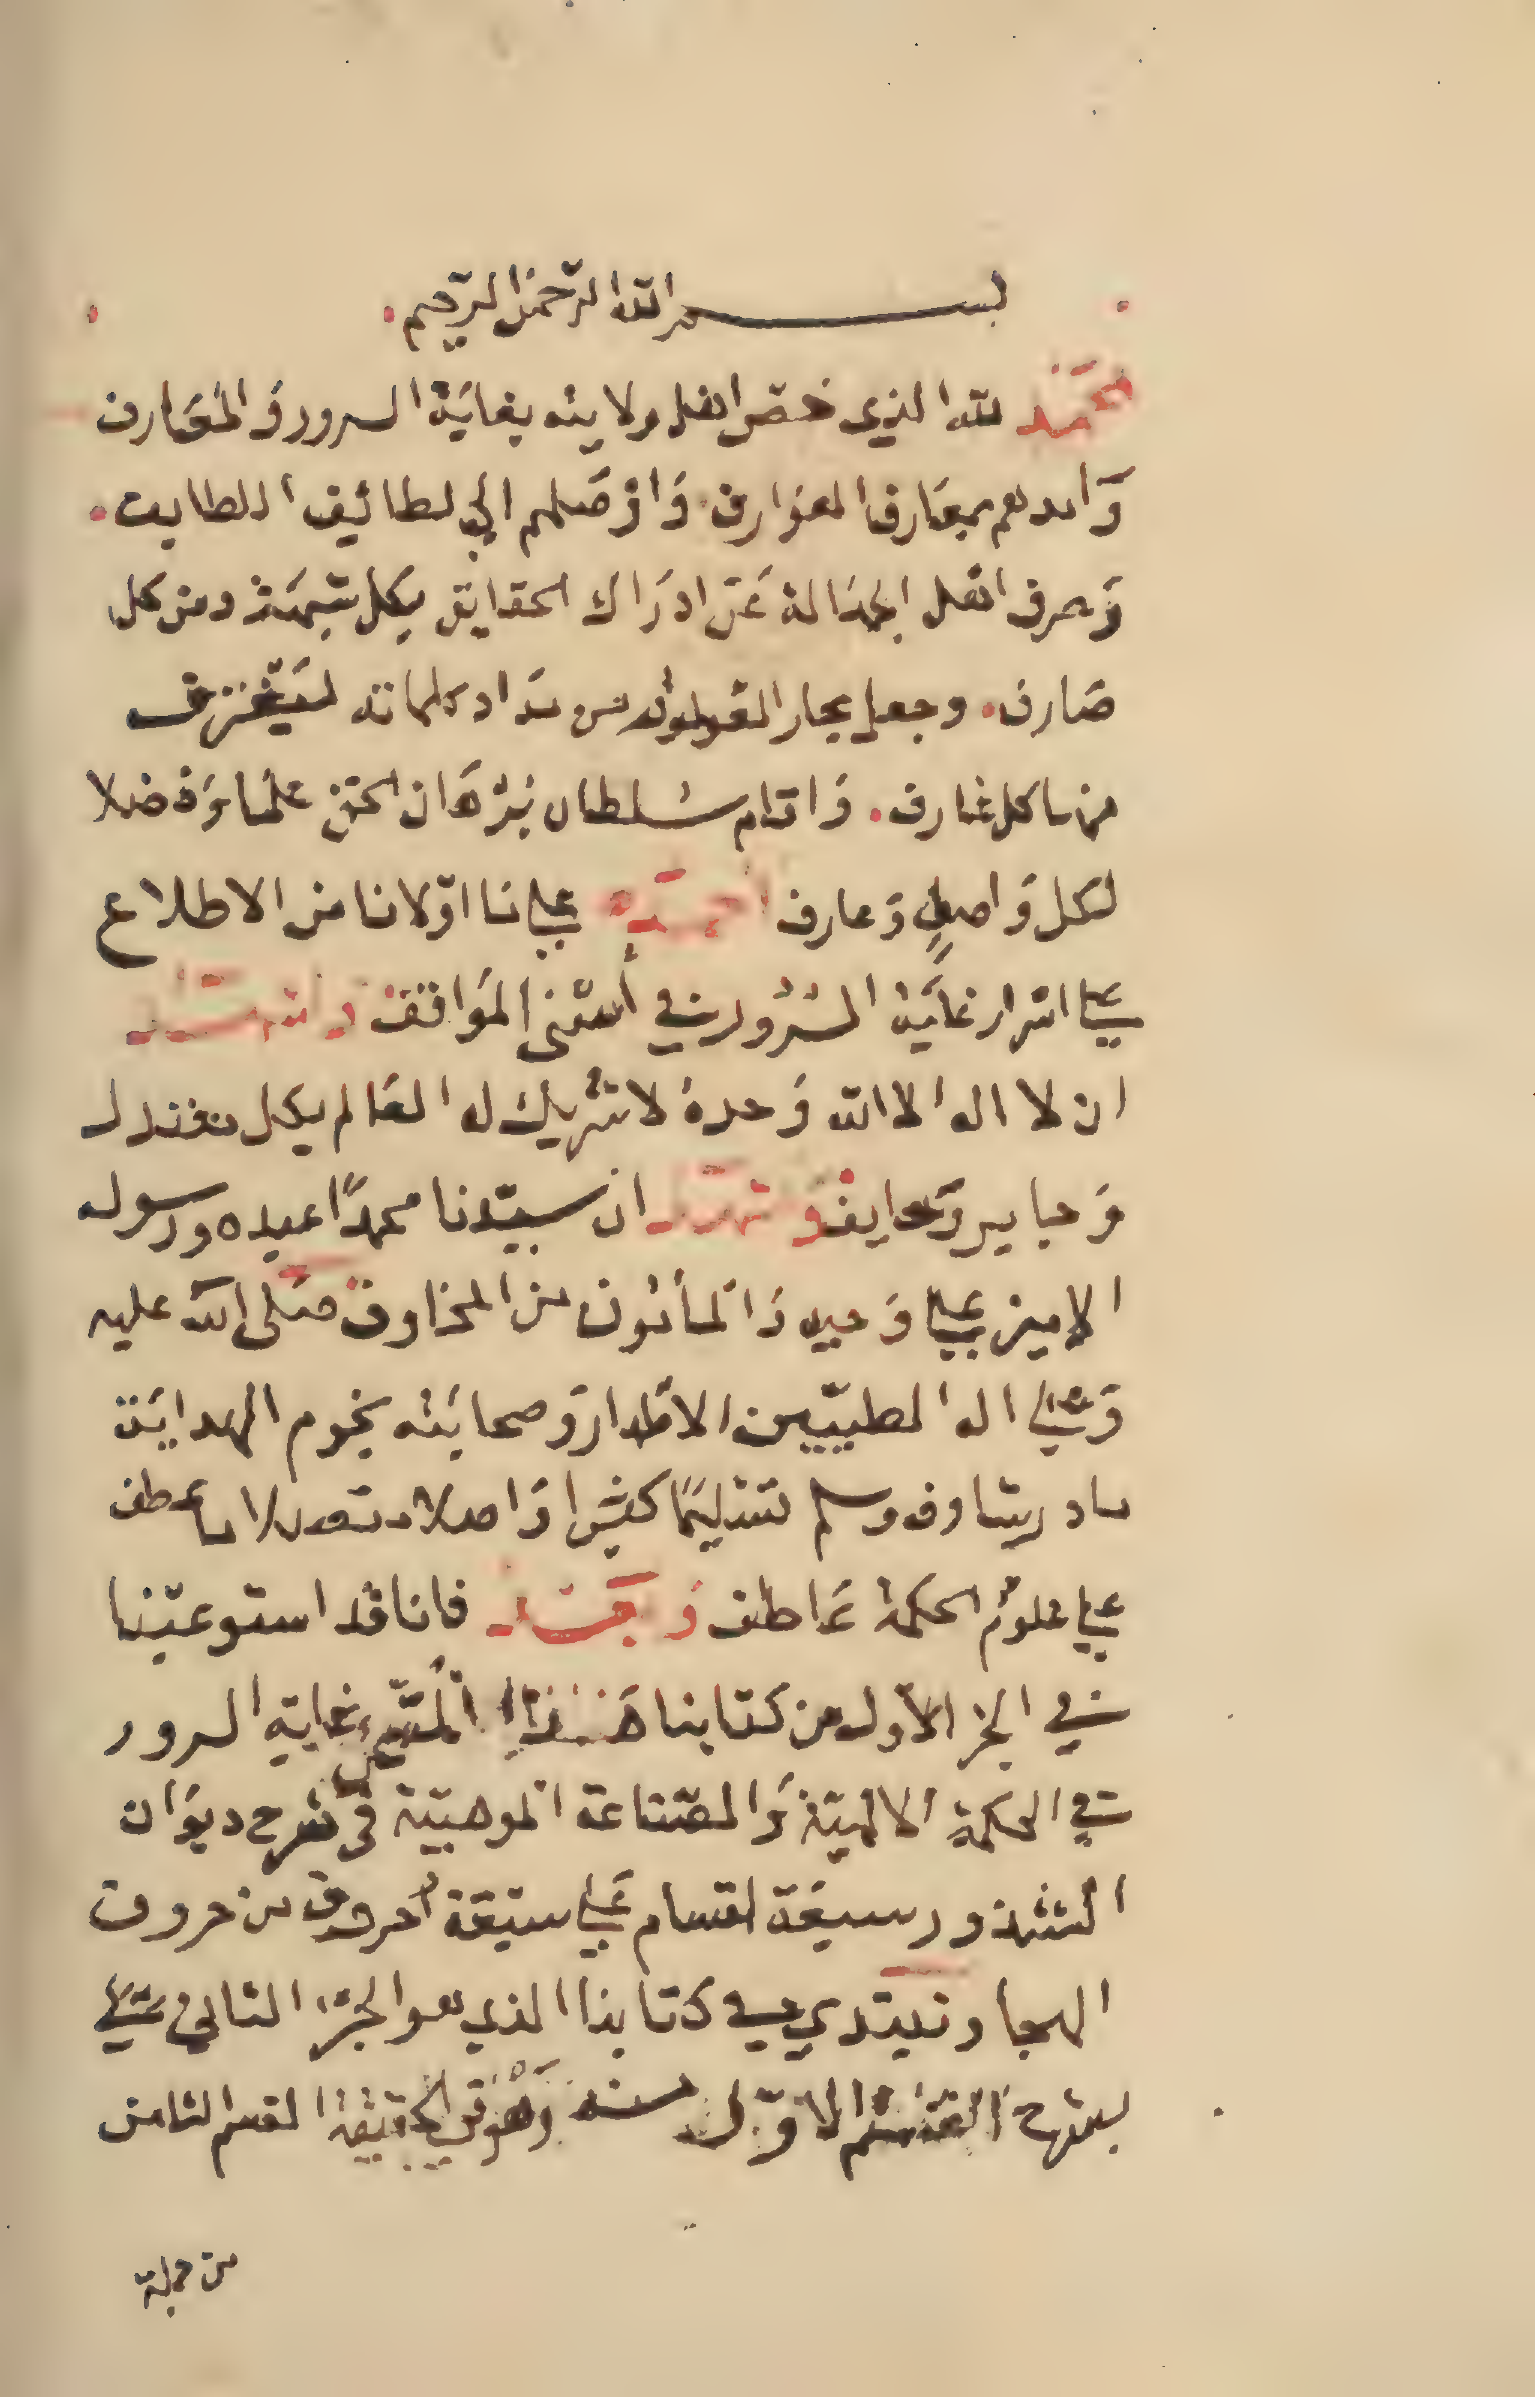 بسم الله الرحمن الرحيم
الحمد لله الذي خصّ اهل ولايته بغاية السرور في المعارف
وَامدهم بمعارف العوارف وَاوْصَلهم الي لطائيف اللطايف
وَصرف اهل الجهالة عَن ادرَاك الحقايق بكل شبهَة ومن كل
صَارف وجعل بحار القول من مدَاد كلماته ليَغترف
منها كل غارف وَاقام سُلطان بُرْهَان الحق علمًا وَفضلا
لكل وَاصلٍ وَعارف احمده علي ما اوّلانا من الاطلاع
علي اسْرار غايَة السُرُور في أسْنى المَواقف واشهد
ان لا اله الا الله وَحدهُ لا شريك له العَالم بكل
وَ انّ سيّدنا محمدًا عبده ورسوله
الامين علي وَحيه وَالمأمُون من المخاوف صَلى الله عليه
وَعلي اله الطيبيين الاطهار وَصحابَته نجوم الهدايَة
وسلم تسْليمًا كثيرا عطف
علي علوُم الحكمة عَاطف وَبَعْد فانا قد استوعبْنا
في الجز الاول من كتابنا هَذا المُسَمّى بغاية السرور
في الحكمةِ الالهيّة وَالصّناعة الموهبيّة في شرح ديوَان
الشذور سبعَة اقسام عَلي سبعَة أحرف من حروف
الهجا ونبتدي في كتابنا الذي هو الجزْء الثاني علي
القسْم الاوّل منه وَهُوَ في الحقيقة القسم الثامن
من جملة